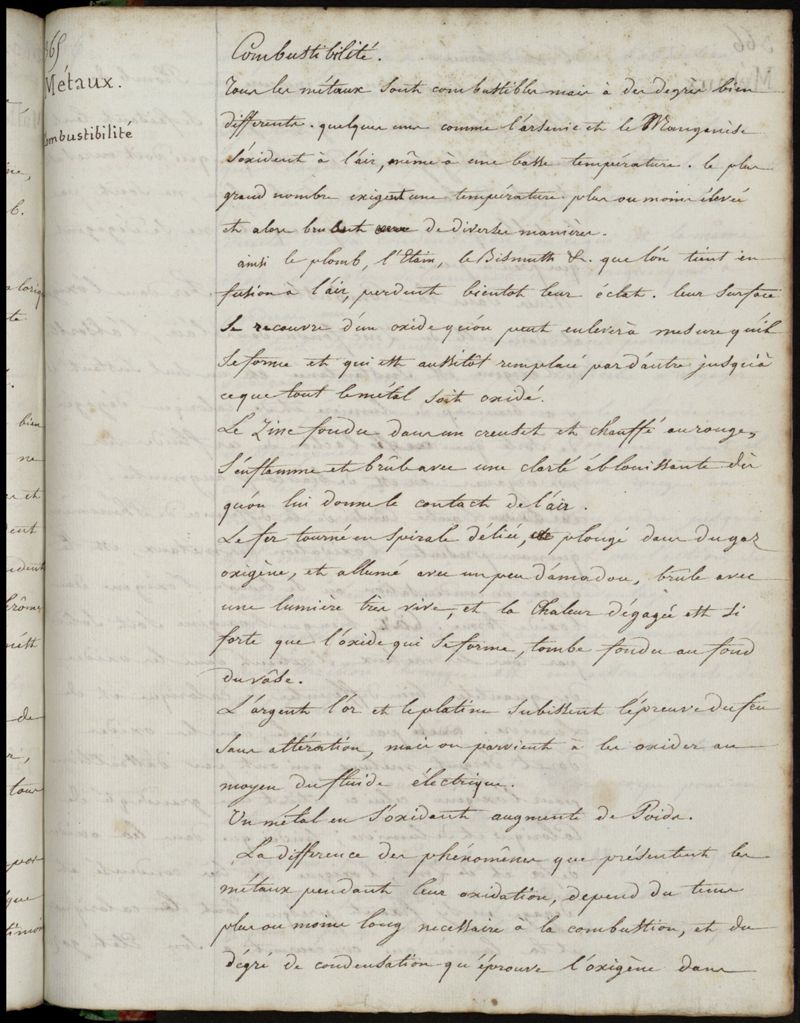 365
Métaux.
Combustibilité
Combustibilité.
Tous les métaux sont combustibles mais à des degrés bien
differents. quelques uns comme l'arsenic et le Manganèse
s'oxident à l'air, même à une basse température. le plus
grand nombre exigent une température plus ou moins élevée
et alors brulent de diverses manières.
ainsi le plomb, l'Etain, le Bismuth &. que l'on tient en
fusion à l'air, perdent bientot leur éclat. leur surface
se recouvre d'un oxide qu'on peut enlever à mesure qu'il
se forme et qui est aussitôt remplacé par d'autre jusqu'à
ce que tout le métal soit oxidé.
Le Zinc fondu dans un creuset et chauffé au rouge,
s'enflamme et brûle avec une clarté éblouissante dès
qu'on lui donne le contact de l'air.
Le fer tourné en spirale déliée, plongé dans du gaz
oxigène, et allumé avec un peu d'amadou, brûle avec
une lumière très vive, et la chaleur dégagée est si
forte que l'oxide qui se forme, tombe fondu au fond
du vâse.
L'argent l'or et le platine subissent l'épreuve du feu
sans altération, mais on parvient à les oxider au
moyen du fluide électrique.
Un métal en s'oxidant augmente de Poids.
La difference des phénomênes que présentent les
métaux pendant leur oxidation, depend du tems
plus ou moins long necessaire à la combustion, et du
dégré de condensation qu'éprouve l'oxigène dans